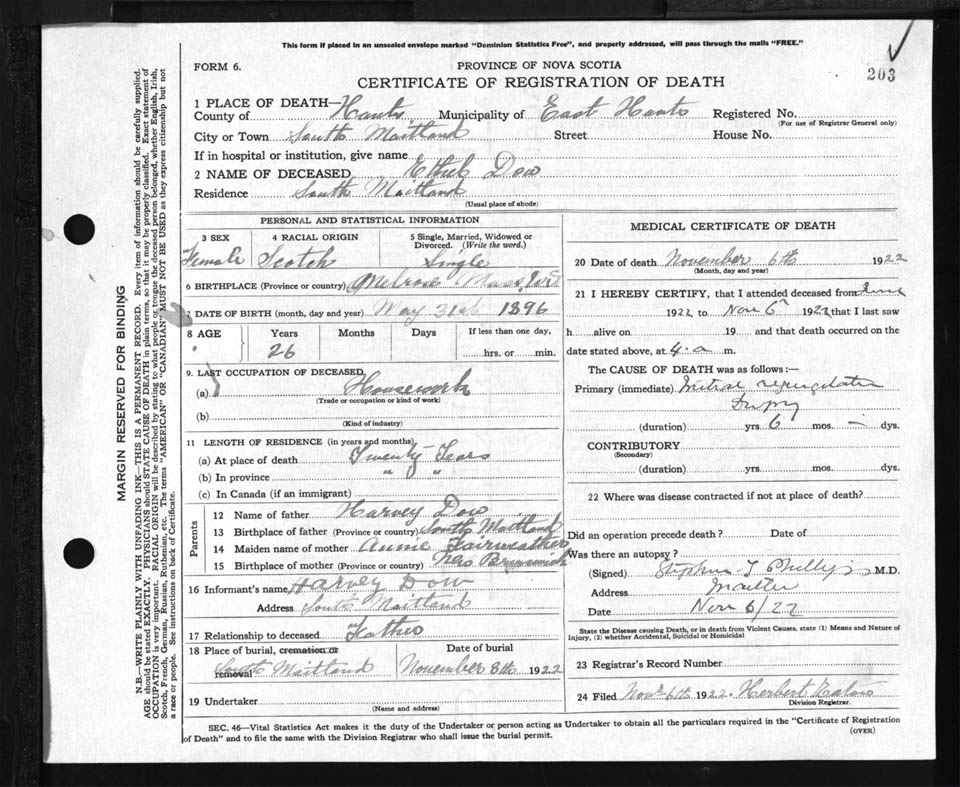 This form if placed in an unsealed envelope marked "Dominion Statistics Free", and properly addressed, will pass through the mails "FREE."
FORM 6.
PROVINCE OF NOVA SCOTIA
203
CERTIFICATE OF REGISTRATION OF DEATH
1 PLACE OF DEATH—
County of Hants Municipality of East Hants Registered No.
(For use of Registrar General only)
City or Town South Maitland Street House No.
If in hospital or institution, give name
2 NAME OF DECEASED Ethel Dow
Residence South Maitland
(Usual place of abode)
PERSONAL AND STATISTICAL INFORMATION
3 SEX 4 RACIAL ORIGIN 5 Single, Married, Widowed or Divorced. (Write the word.)
Female Scotch Single
6 BIRTHPLACE (Province or country) Melrose Mass, U.S.
7 DATE OF BIRTH (month, day and year) May 31st 1896
8 AGE Years Months Days If less than one day,
26 hrs. or min.
9. LAST OCCUPATION OF DECEASED
(a) Housework
(Trade or occupation or kind of work)
(b)
(Kind of industry)
11 LENGTH OF RESIDENCE (in years and months)
(a) At place of death Twenty Years
(b) In province " "
(c) In Canada (if an immigrant)
Parents
12 Name of father Harvey Dow
13 Birthplace of father (Province or country) South Maitland
14 Maiden name of mother Annie Fairweather
15 Birthplace of mother (Province or country) New Brunswick
16 Informant's name HARVEY DOW
Address South Maitland
17 Relationship to deceased Father
18 Place of burial, cremation or removal Date of burial
South Maitland November 8th 1922
19 Undertaker
(Name and address)
MEDICAL CERTIFICATE OF DEATH
20 Date of death November 6th 1922
(Month, day and year)
21 I HEREBY CERTIFY, that I attended deceased from June
1922 to Nov 6th 1922 that I last saw
h alive on 19 and that death occurred on
date stated above, at 4 a m.
The CAUSE OF DEATH was as follows:—
Primary (immediate) Mitral regurgitation
(duration) yrs 6 mos. - dys.
CONTRIBUTORY
(Secondary)
(duration) yrs. mos. dys.
22 Where was disease contracted if not at place of death?
Did an operation precede death? Date of
Was there an autopsy?
(Signed) M.D.
Address
Date Nov 6/22
State the Disease causing Death, or in death from Violent Causes, state (1) Means and Nature of
Injury, (2) whether Accidental, Suicidal or Homicidal
23 Registrar's Record Number
24 Filed Nov 6th 1922. Herbert
Division Registrar.
SEC. 46—Vital Statistics Act makes it the duty of the Undertaker or person acting as Undertaker to obtain all the particulars required in the "Certificate of Registration
of Death" and to file the same with the Division Registrar who shall issue the burial permit.
(OVER)
MARGIN RESERVED FOR BINDING
N.B—WRITE PLAINLY WITH UNFADING INK—THIS IS A PERMANENT RECORD. Every item of information should be carefully supplied.
AGE should be stated EXACTLY. PHYSICIANS should STATE CAUSE OF DEATH in plain terms, so that it may be properly classified. Exact statement of
OCCUPATION is very important. RACIAL ORIGIN will be described by stating to what people or tongue the deceased person belonged, whether English, Irish,
Scotch, French, German, Russian, Ruthenian, etc. The terms "AMERICAN" or "CANADIAN" MUST NOT BE USED as they express citizenship but not
a race or people. See instructions on back of Certificate.